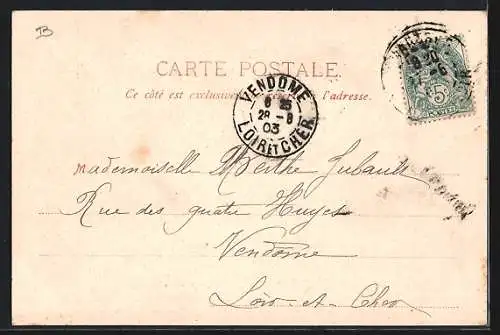 B
CARTE POSTALE
Ce côté est exclusivement réservé à l'adresse.
VENDOME
6 25
28 - 8
03
LOIR ET CHER
5c
Mademoiselle Marthe Jubault
Rue des quatre Huyes
Vendôme
Loir-et-Cher